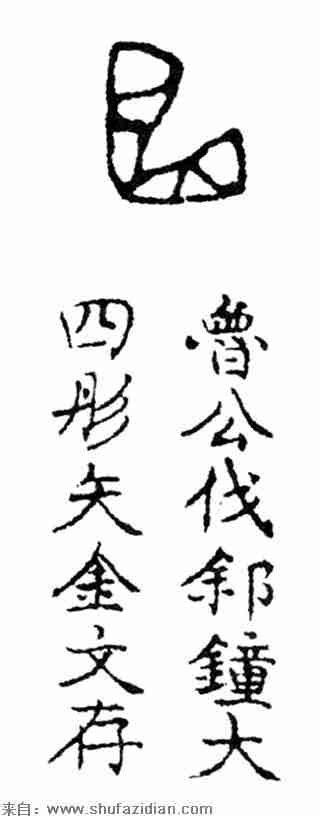 魯公伐邾鐘大
四彤矢金文存
来自：www.shufazidian.com